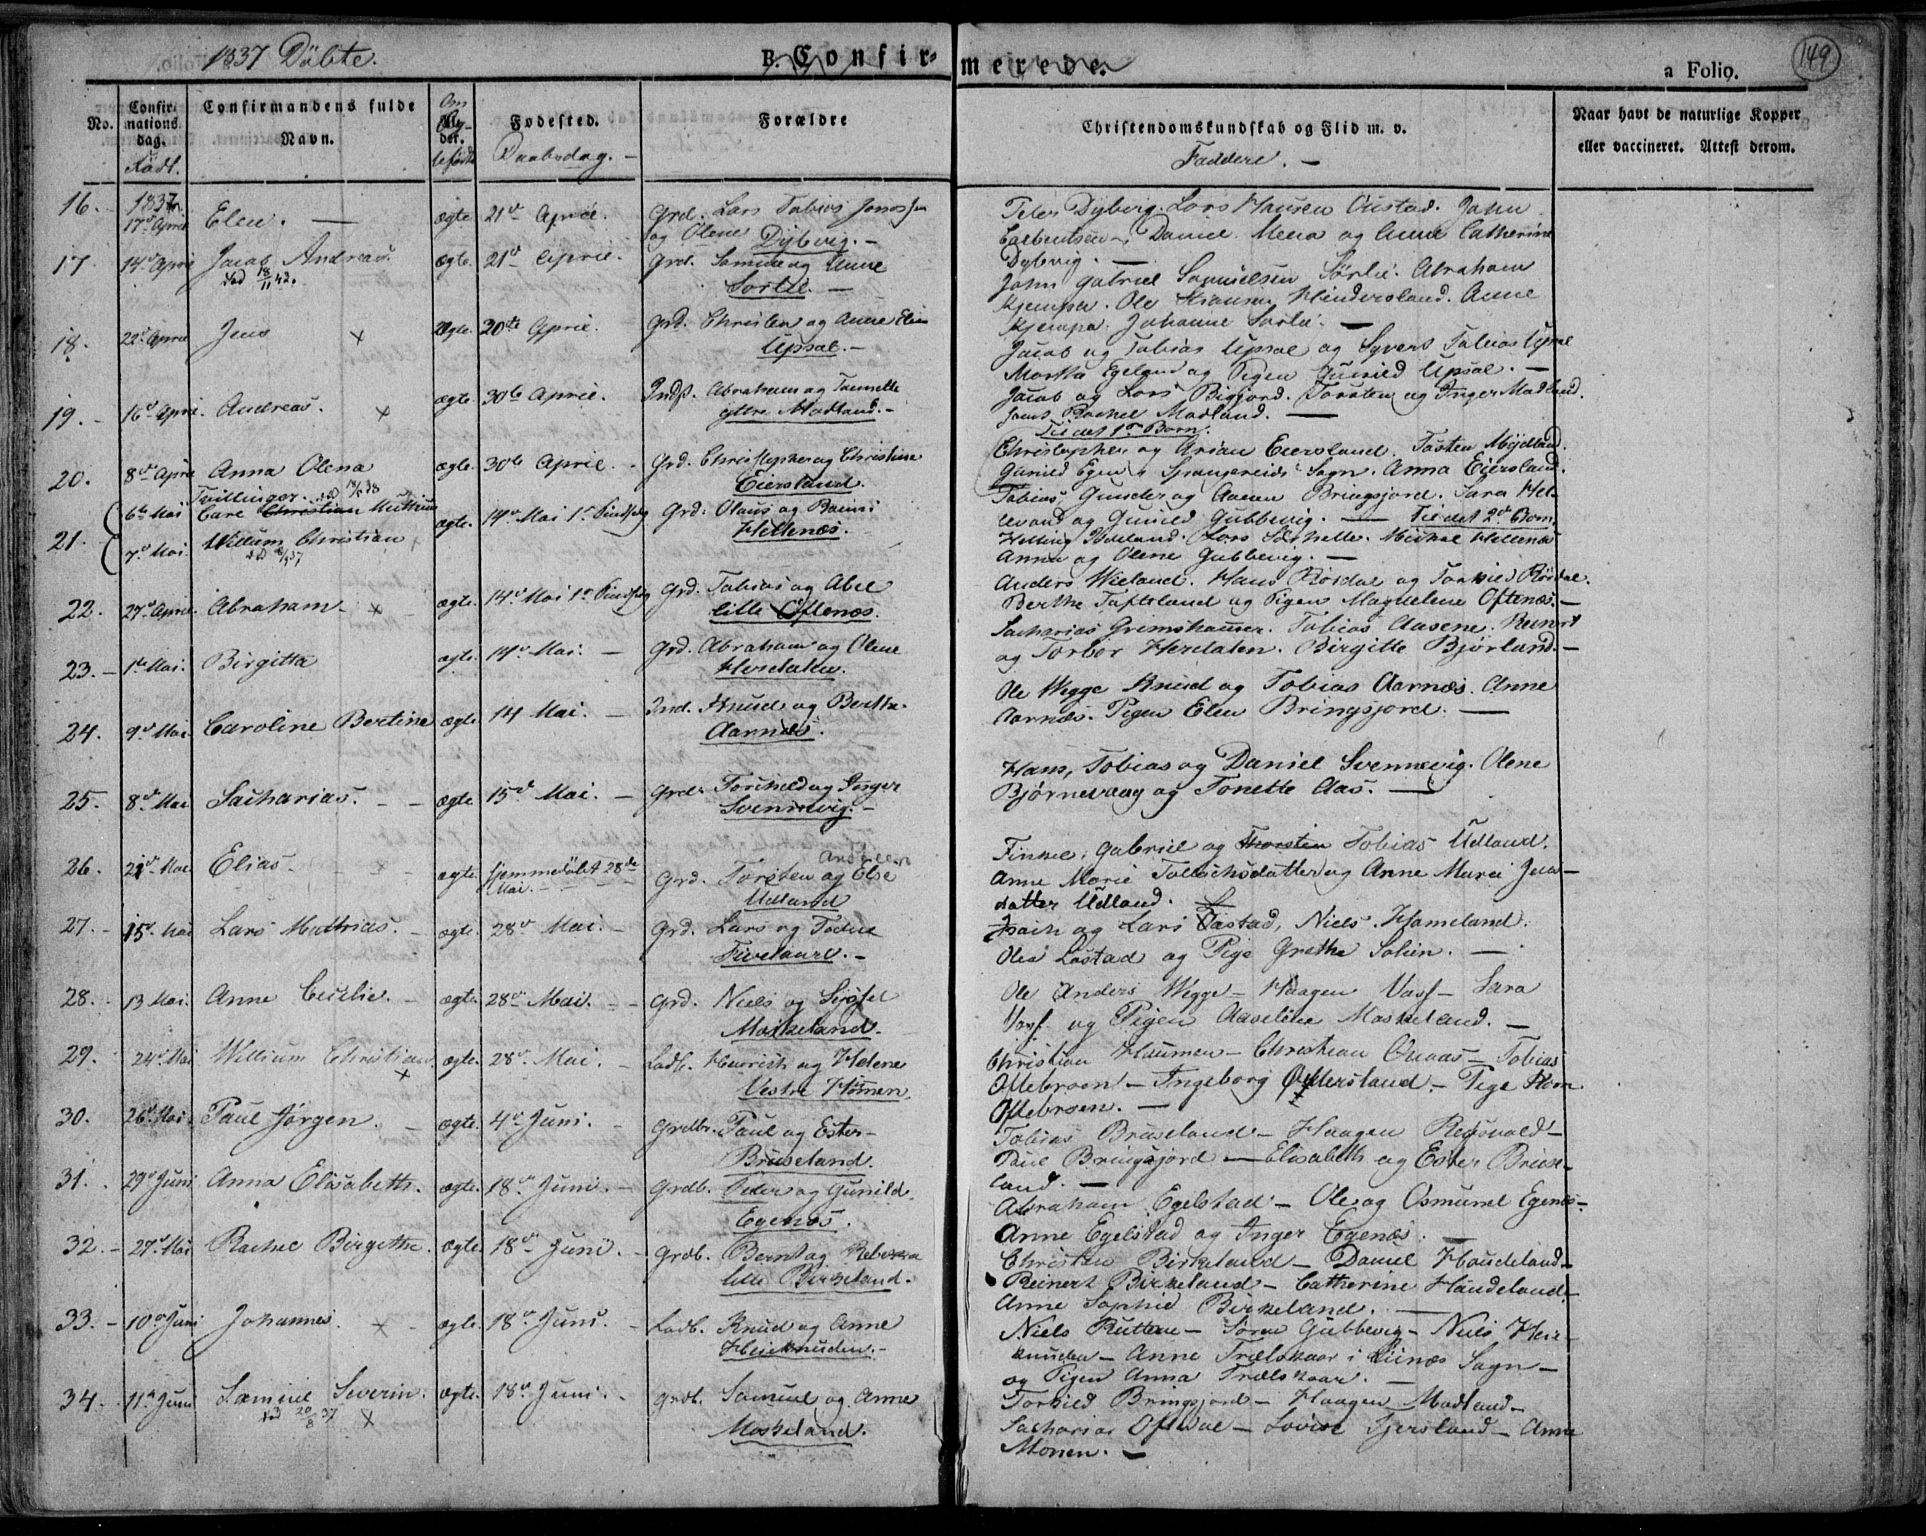 1837 Döbte.
B. Confirmerede.
149
a Folio.
No.
Confirmations dag.
Födt.
Confirmandens fulde Navn.
Om
Fødested.
Daabsdag. —
Forældre
Christendomskundskab og Flid m. v.
Faddere. —
Naar havt de naturlige Kopper eller vaccineret. Attest derom.
16. 1837 17de April Elen. — ægte 21de April. Grd. Lars Tobias
og Olene Dybvig. —
Peter Dyberg. Lars Hansen Oustad. John
Daniel Mena og Anne Cathrine
Dybvig. —
17 14de April Jacob Andreas ægte. 21de April. Grd. Samuel og Anne
död 18/11 42. Sorlie. —
John Gabriel Samuelsen Sørlie. Abraham
Kjempa. Ole Hindersland. Anne
Kjempa. Johanne Sørlie. —
18. 22de April Jens × ægte. 20de April. Grd. Christen og Anne Elin
Upsal. —
Jacob og Tobias Upsal og Syvert Tobias Upsal
Martha Egeland og Pigen Gunild Upsal. —
19. 16de April. Andreas. × ægte 30te April. Inds. Abraham og Tonnette
yttre Madland. —
Jacob og Lars Bigjord. Torsten og Inger Madland.
Rachel Madland. —
20. 8de April Anna Olena ægte 30te April. Grd. Christopher og Christine
Eiersland.
Til det 1ste Barn.
Christopher og Arian Eiersland. Tosten Mydland.
Gunild Egen i Spangereids Sogn. Anna Eiersland.
21. 6te Mai Tvillinger. död 13/5 38
Carl Christian Mathias ægte. 14de Mai 1ste Pindsdag Grd. Olaus og Rainie
7de Mai. Willum Christian Hellenæs.
Tobias, Gunder og Aanen Bringsjord. Sara Hel-
levand og Gunild Gubbevig. — Til det 2det Barn.
Lars Michal Hellenæs
Anna og Olene Gubbevig. —
22. 27de April. Abraham. × ægte. 14de Mai 1ste Pindsdag Grd. Tobias og Abel
lille Oftenæs.
Anders Wieland. Hans Røsdal og Torkild Røsdal.
Berthe Taftsland og Pigen Magdelene Oftenæs. —
23. 1ste Mai. Birgitta ægte 14de Mai. — Grd. Abraham og Olene
Herdalen.
Sacharias Grimshauser. Tobias Aasene. Reinert
og Torbor Herdalen. Birgitte Bjørland. —
24. 9de Mai. Caroline Bertine ægte 14 Mai. — Ind. Knud og Bertha
Aarnæs.
Ole Wegge Knud og Tobias Aarnæs. Anne
Aarnæs. Pigen Elen Bringsjord. —
25. 8de Mai Sacharias. — ægte 15de Mai. — Grd. Torkild og Inger
Svennevig. —
Hans, Tobias og Daniel Svennevig. Olene
Bjørnevaag og Tonette Aas. —
26. 21de Mai Elias. × ægte hjemmedöbt 28de Mai. — Grd. Torsten og Else
Udland
Finkel, Gabriel og Thorsten Tobias Udland.
Anne Marie Tollichsdatter og Anne Marie Jens-
datter Udland.
27. 15de Mai Lars Mathias. — ægte. 28de Mai. — Grd. Lars og Todne
Tivelaure. —
og Lars Lastad, Niels Hameland.
Ole Lastad og Pige Grethe Solien. —
28. 13 Mai. Anne Cecilie. — ægte. 28de Mai. — Grd. Niels og Sysel
Maskeland.
Ole Anders Wegge — Haagen Vasf — Sara
Vasf og Pigen Aaselene Maskeland. —
29. 24de Mai William Christian ægte. 28de Mai. — Ladb. Henrich og Helene
× Vestre Hømen.
Christian Haumen — Christian Quaas — Tobias
Oftebroen — Ingeborg Øftersland — Pige Karn
Oftebroen. —
30. 26de Mai. Paul Jørgen. — ægte. 4de Juni. — Grdbr. Paul og Ester
Bruseland.
Tobias Bruseland — Haagen Rosvold —
Paul Bringsjord — Elisabeth og Ester Bruse-
land. —
31. 29de Juni Anna Elisabeth. ægte. 18de Juni. — Grdb. Peder og Gunild
Egenæs.
Abraham Egelstad — Ole og Osmund Egenæs —
Anne Egelstad og Inger Egenæs. —
32. 27de Mai Rachel Birgitha. ægte. 18de Juni. — Grdb. Bernt og Rebekka
lille Birkeland.
Christen Birkeland — Daniel Haudeland —
Reinert Birkeland — Catherine Haudeland —
Anne Sophie Birkeland. —
33. 10de Juni Johannes. × ægte. 18de Juni. — Ladb. Knud og Anne
Heieknuden. —
Niels Rutten — Søren Gubbevig — Niels Heie-
knuden — Anne Trælskaar i Liknæs Sogn —
og Pigen Anna Trælskaar. —
34. 11te Juni Samuel Severin. ægte. 18de Juni. — Grdb. Samuel og Anne
död 20/8 37 × Moskeland.
Torkild Bringsjord — Haagen Madland —
Sacharias Oftedal — Lovise Tjersland — Anne
Monen. —